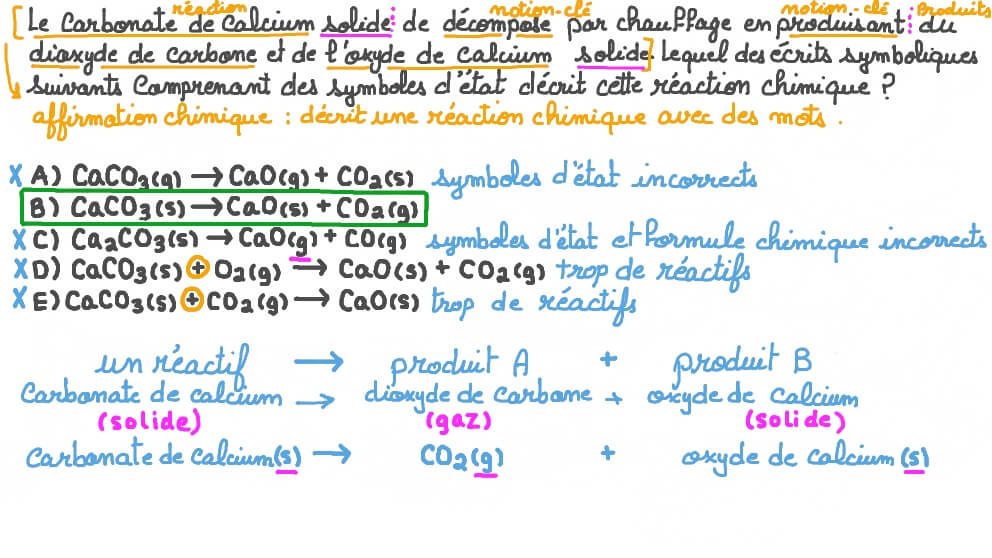 réaction motion-clé motion.-clé Produits
[Le Carbonate de Calcium solide : de décompose par chauffage en produisant : du
dioxyde de Carbone et de l'oxyde de Calcium solide]. Lequel des écrits symboliques
suivants Comprenant des symboles d'état décrit cette réaction chimique ?
affirmation chimique : décrit une réaction chimique avec des mots.
X A) CaCO₃(g) → CaO(g) + CO₂(s) symboles d'état incorrects
B) CaCO₃(s) → CaO(s) + CO₂(g)
X C) Ca₂CO₃(s) → CaO(g) + CO(g) symboles d'états et formule chimique incorrects
X D) CaCO₃(s) + O₂(g) → CaO(s) + CO₂(g) trop de réactifs
X E) CaCO₃(s) + CO₂(g) → CaO(s) trop de réactifs
un réactif → produit A + produit B
Carbonate de calcium → dioxyde de Carbone + oxyde de Calcium
(solide) (gaz) (solide)
Carbonate de Calcium(s) → CO₂(g) + oxyde de Calcium (s)